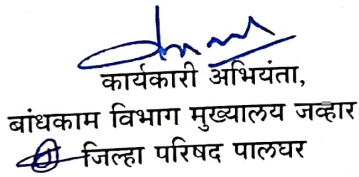 कार्यकारी अभियंता,
बांधकाम विभाग मुख्यालय जव्हार
जिल्हा परिषद पालघर